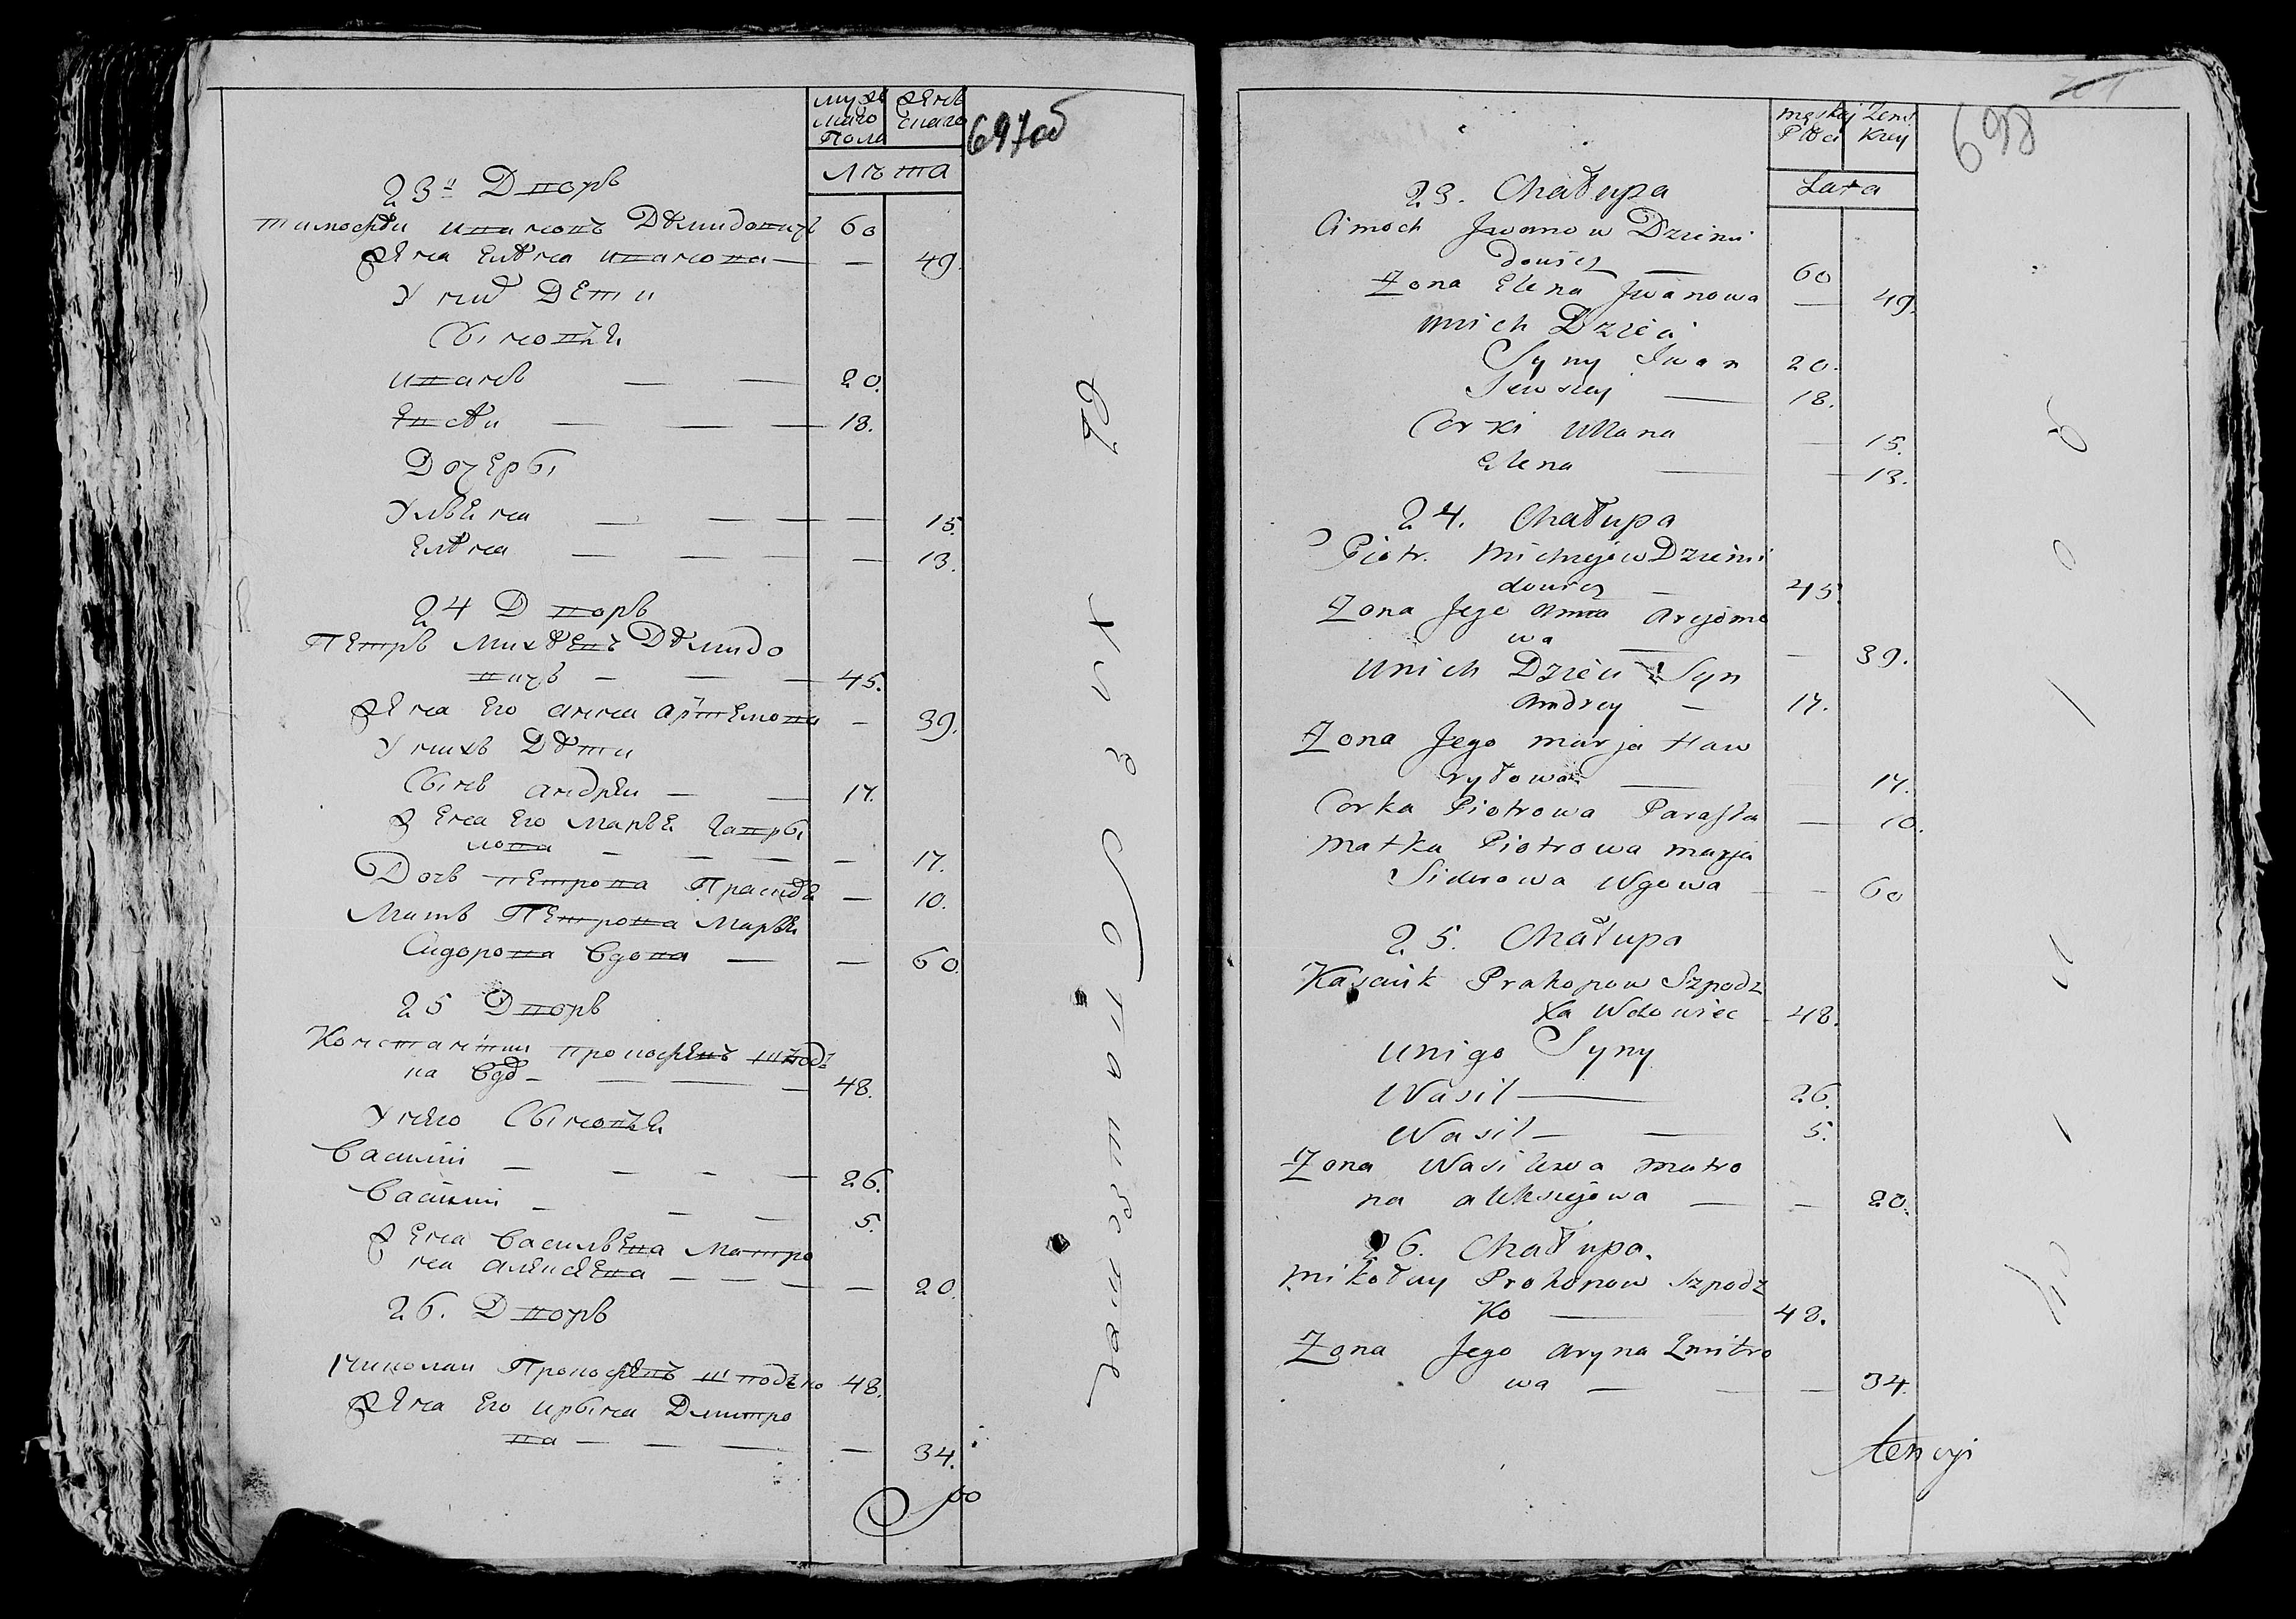 697об
мужескаго женскаго
Пола
Лѣта
23й Дворъ
Тимофѣй Ивановъ Дѣмидовичъ 60
Жена Елѣна Иванова — — 49.
У ниѣ Дѣти
Сыновѣя
Иванъ — — 20.
Евсѣй — — — 18.
Дочеры
Ульена — — — — 15.
Елѣна — — — — 13.
24 Дворъ
Петръ Михѣевъ Дѣмидо
вичъ — — — 45.
Жена Его Анна Артемова — 39.
У нихъ Дѣти
Сынъ Андрей — — 17.
Жена Его Марья Гавры
лова — — — — 17.
Дочь Петрова Праскѣдѣ — 10.
Мать Петрова Марья
Сидорова Вдова — — 60.
25 Дворъ
Константин Прокофѣевъ Шподз
ка Вдо — — — 48.
У него Сыновѣя
Василий — — — — 26.
Василий — — — 5.
Жена Васильева Матро
на Алексѣева — — — — 20.
26. Дворъ
Николай Прокофѣевъ Шподзко 48.
Жена Его Ирына Дмитро
ва — — — — 34.
698
męskiey Zenskiey
Płci
Lata
23. Chałupa
Cimoch Jwanow Dziemi
dowicz — 60
Zona Elena Jwanowa — 49.
Unich Dzieci
Syny Jwan 20.
Jewsiey — 18.
Corki Ullana — 15.
Elena — — 13.
24. Chałupa
Piotr. Michiejow Dziemi
dowicz — 45.
Zona Jego Anna Arcjomo
wa — — 39.
Unich Dzieci Syn
Andrey — 17.
Zona Jego Marja Haw
ryłowa — 17.
Corka Piotrowa Paraska — 10.
Matka Piotrowa Marja
Siderowa Wdowa — — 60
25. Chałupa
Kasciuk Prakopow Szpodz
ka Wdowiec 48.
Unigo Syny
Wasil — 26.
Wasil — — 5.
Zona Wasilewa Matro
na Aleksiejowa — — 20.
26. Chałupa.
Mikołay Prokopow Szpodz
ko — 48.
Zona Jego Aryna Zmitro
wa — — — 34.